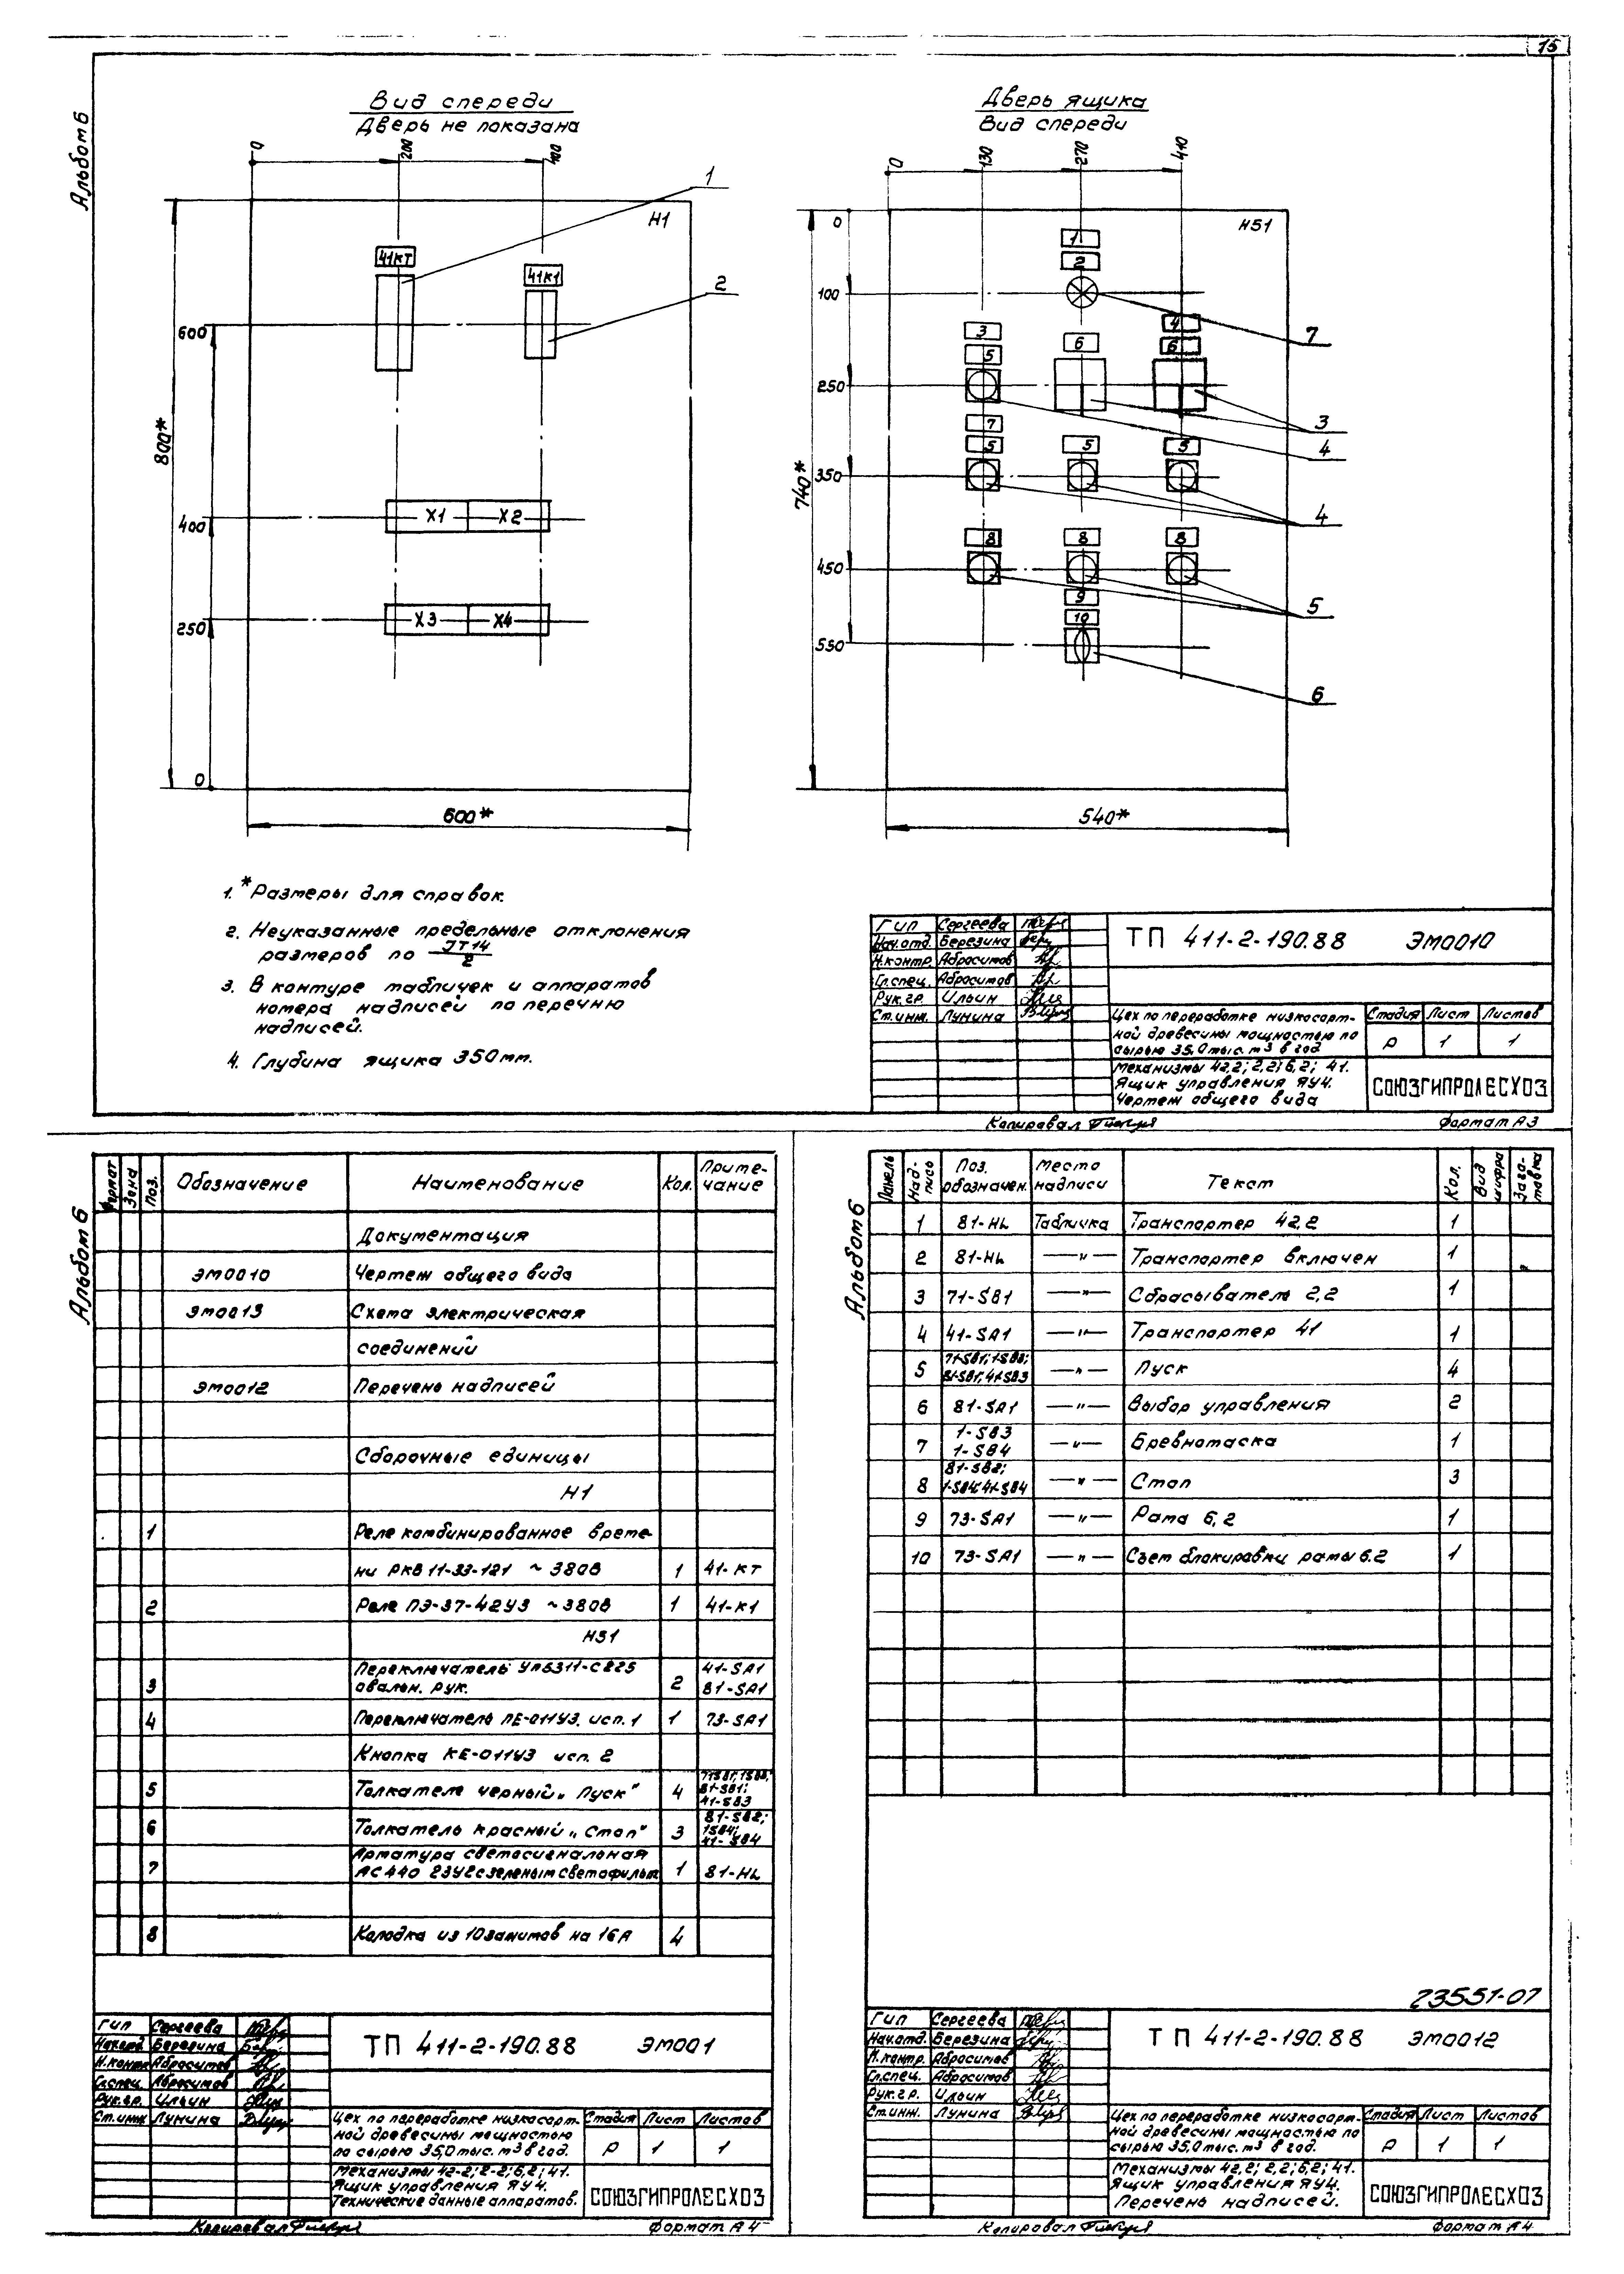 15
Альбом 6
Вид спереди
Дверь не показана
0
200
400
1
Н1
41КТ
41К1
2
600
800*
400
Х1
Х2
250
Х3
Х4
0
600*
Дверь ящика
Вид спереди
0
130
270
410
0
Н51
1
2
100
7
3
4
5
6
6
250
3
4
7
5
5
5
350
740*
4
8
8
8
450
5
9
10
550
6
540*
1.* Размеры для справок.
2. Неуказанные предельные отклонения
размеров по JT14/2
3. В контуре табличек и аппаратов
номера надписей по перечню
надписей.
4. Глубина ящика 350мм.
Гип Сергеева
Нач.отд. Березина
Н.контр. Абросимов
Гл.спец. Абросимов
Рук.гр. Ильин
Ст.инж. Лунина
ТП 411-2-190.88 ЭМ0010
Цех по переработке низкосорт-
ной древесины мощностью по
сырью 35,0 тыс. м3 в год
Стадия Лист Листов
Р 1 1
Механизмы 42,2; 2,2; 6,2; 41.
Ящик управления ЯУ4.
Чертеж общего вида
СОЮЗГИПРОЛЕСХОЗ
Копировал
Формат А3
Альбом 6
Формат Зона Поз. Обозначение Наименование Кол. Приме-
чание
Документация
ЭМ0010 Чертеж общего вида
ЭМ0013 Схема электрическая
соединений
ЭМ0012 Перечень надписей
Сборочные единицы
Н1
1 Реле комбинированное време-
ни РКВ 11-33-121 ~ 380В 1 41-КТ
2 Реле ПЭ-37-42У3 ~380В 1 41-К1
Н51
Переключатель УП5311-С225 41-SA1
3 овальн. рук. 2 81-SA1
4 Переключатель ПЕ-011У3. исп. 1 1 73-SA1
Кнопка КЕ-011У3 исп. 2
5 Толкатель черный „Пуск" 4
81-SB1;
41-SB3
6 Толкатель красный „Стоп" 3 81-SB2;
1SB4;
41-SB4
Арматура светосигнальная
7 АС440 23У2 с зеленым светофильт 1 81-HL
8 Колодка из 10 зажимов на 16А 4
Гип Сергеева
Нач.отд. Березина
Н.контр Абросимов
Гл.спец. Абросимов
Рук.гр. Ильин
Ст.инж Лунина
ТП 411-2-190.88 ЭМ001
Цех по переработке низкосорт-
ной древесины мощностью
по сырью 35,0 тыс. м3 в год.
Стадия Лист Листов
Р 1 1
Механизмы 42-2; 2-2; 6,2; 41.
Ящик управления ЯУ4.
Технические данные аппаратов.
СОЮЗГИПРОЛЕСХОЗ
Копировал
Формат А4
Альбом 6
Панель Над-
пись Поз.
обозначен. Место
надписи Текст Кол. Вид
шифра Заго-
товка
1 81-HL Табличка Транспортер 42,2 1
2 81-HL —"— Транспортер включен 1
3 71-SB1 —"— Сбрасыватель 2,2 1
4 41-SA1 —"— Транспортер 41 1
5 71-SB1; 1-SB3;
81-SB1; 41-SB3 —"— Пуск 4
6 81-SA1 —"— Выбор управления 2
7 1-SB3
1-SB4 —"— Бревнотаска 1
8 81-SB2;
1-SB4; 41-SB4 —"— Стоп 3
9 73-SA1 —"— Рама 6,2 1
10 73-SA1 —"— Съем блокировки рамы 6.2 1
23551-07
Гип Сергеева
Нач.отд. Березина
Н.контр. Абросимов
Гл.спец. Абросимов
Рук.гр. Ильин
Ст.инж. Лунина
ТП 411-2-190.88 ЭМ0012
Цех по переработке низкосорт-
ной древесины мощностью по
сырью 35,0 тыс. м3 в год.
Стадия Лист Листов
Р 1 1
Механизмы 42,2; 2,2; 6,2; 41.
Ящик управления ЯУ4.
Перечень надписей.
СОЮЗГИПРОЛЕСХОЗ
Копировал
Формат А4